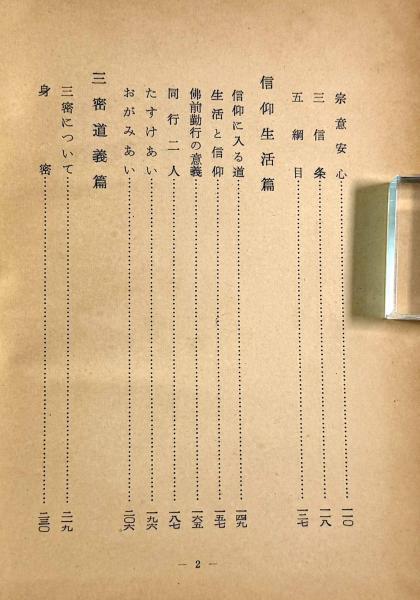 宗意安心……一一〇
三信条……一一八
五綱目……一三七
信仰生活篇
信仰に入る道……一四九
生活と信仰……一五七
佛前勤行の意義……一六五
同行二人……一八七
たすけあい……一九六
おがみあい……二〇六
三密道義篇
三密について……二一九
身密……二三〇
— 2 —